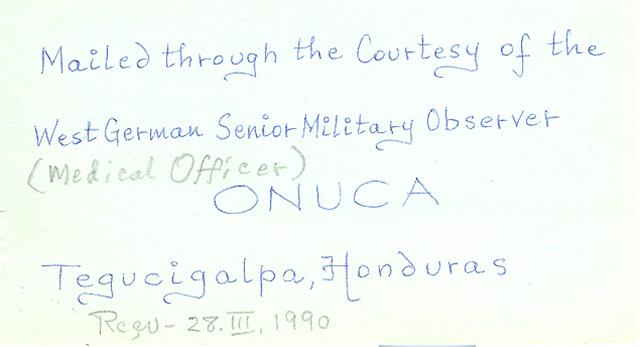 Mailed through the Courtesy of the
West German Senior Military Observer
(Medical Officer)
ONUCA
Tegucigalpa, Honduras
28. III, 1990